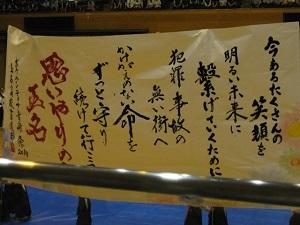 今あるたくさんの笑顔を
明るい未来に
繋げていくために
犯罪・事故の
無い街へ
かけがえのない命を
ずっと守り
続けて行こう
思いやりの
玉名